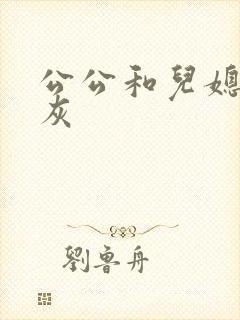 公公和兒媳
灰
劉魯舟